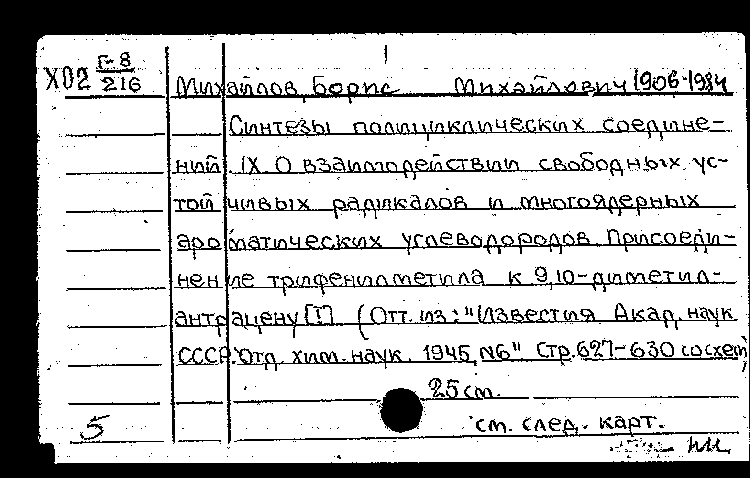 Х02 Г-8
216
Михайлов, Борис Михайлович 1906-1984
Синтезы полициклических соедине-
ний. IX. О взаимодействии свободных ус-
тойчивых радикалов и многоядерных
ароматических углеводородов. Присоеди-
нение трифенилметила к 9,10-диметил-
антрацену [!] (Отт. из: "Известия Акад. наук
СССР. Отд. хим. наук. 1945, №6" Стр. 627-630 со схем,
25 см.
см. след. карт.
5